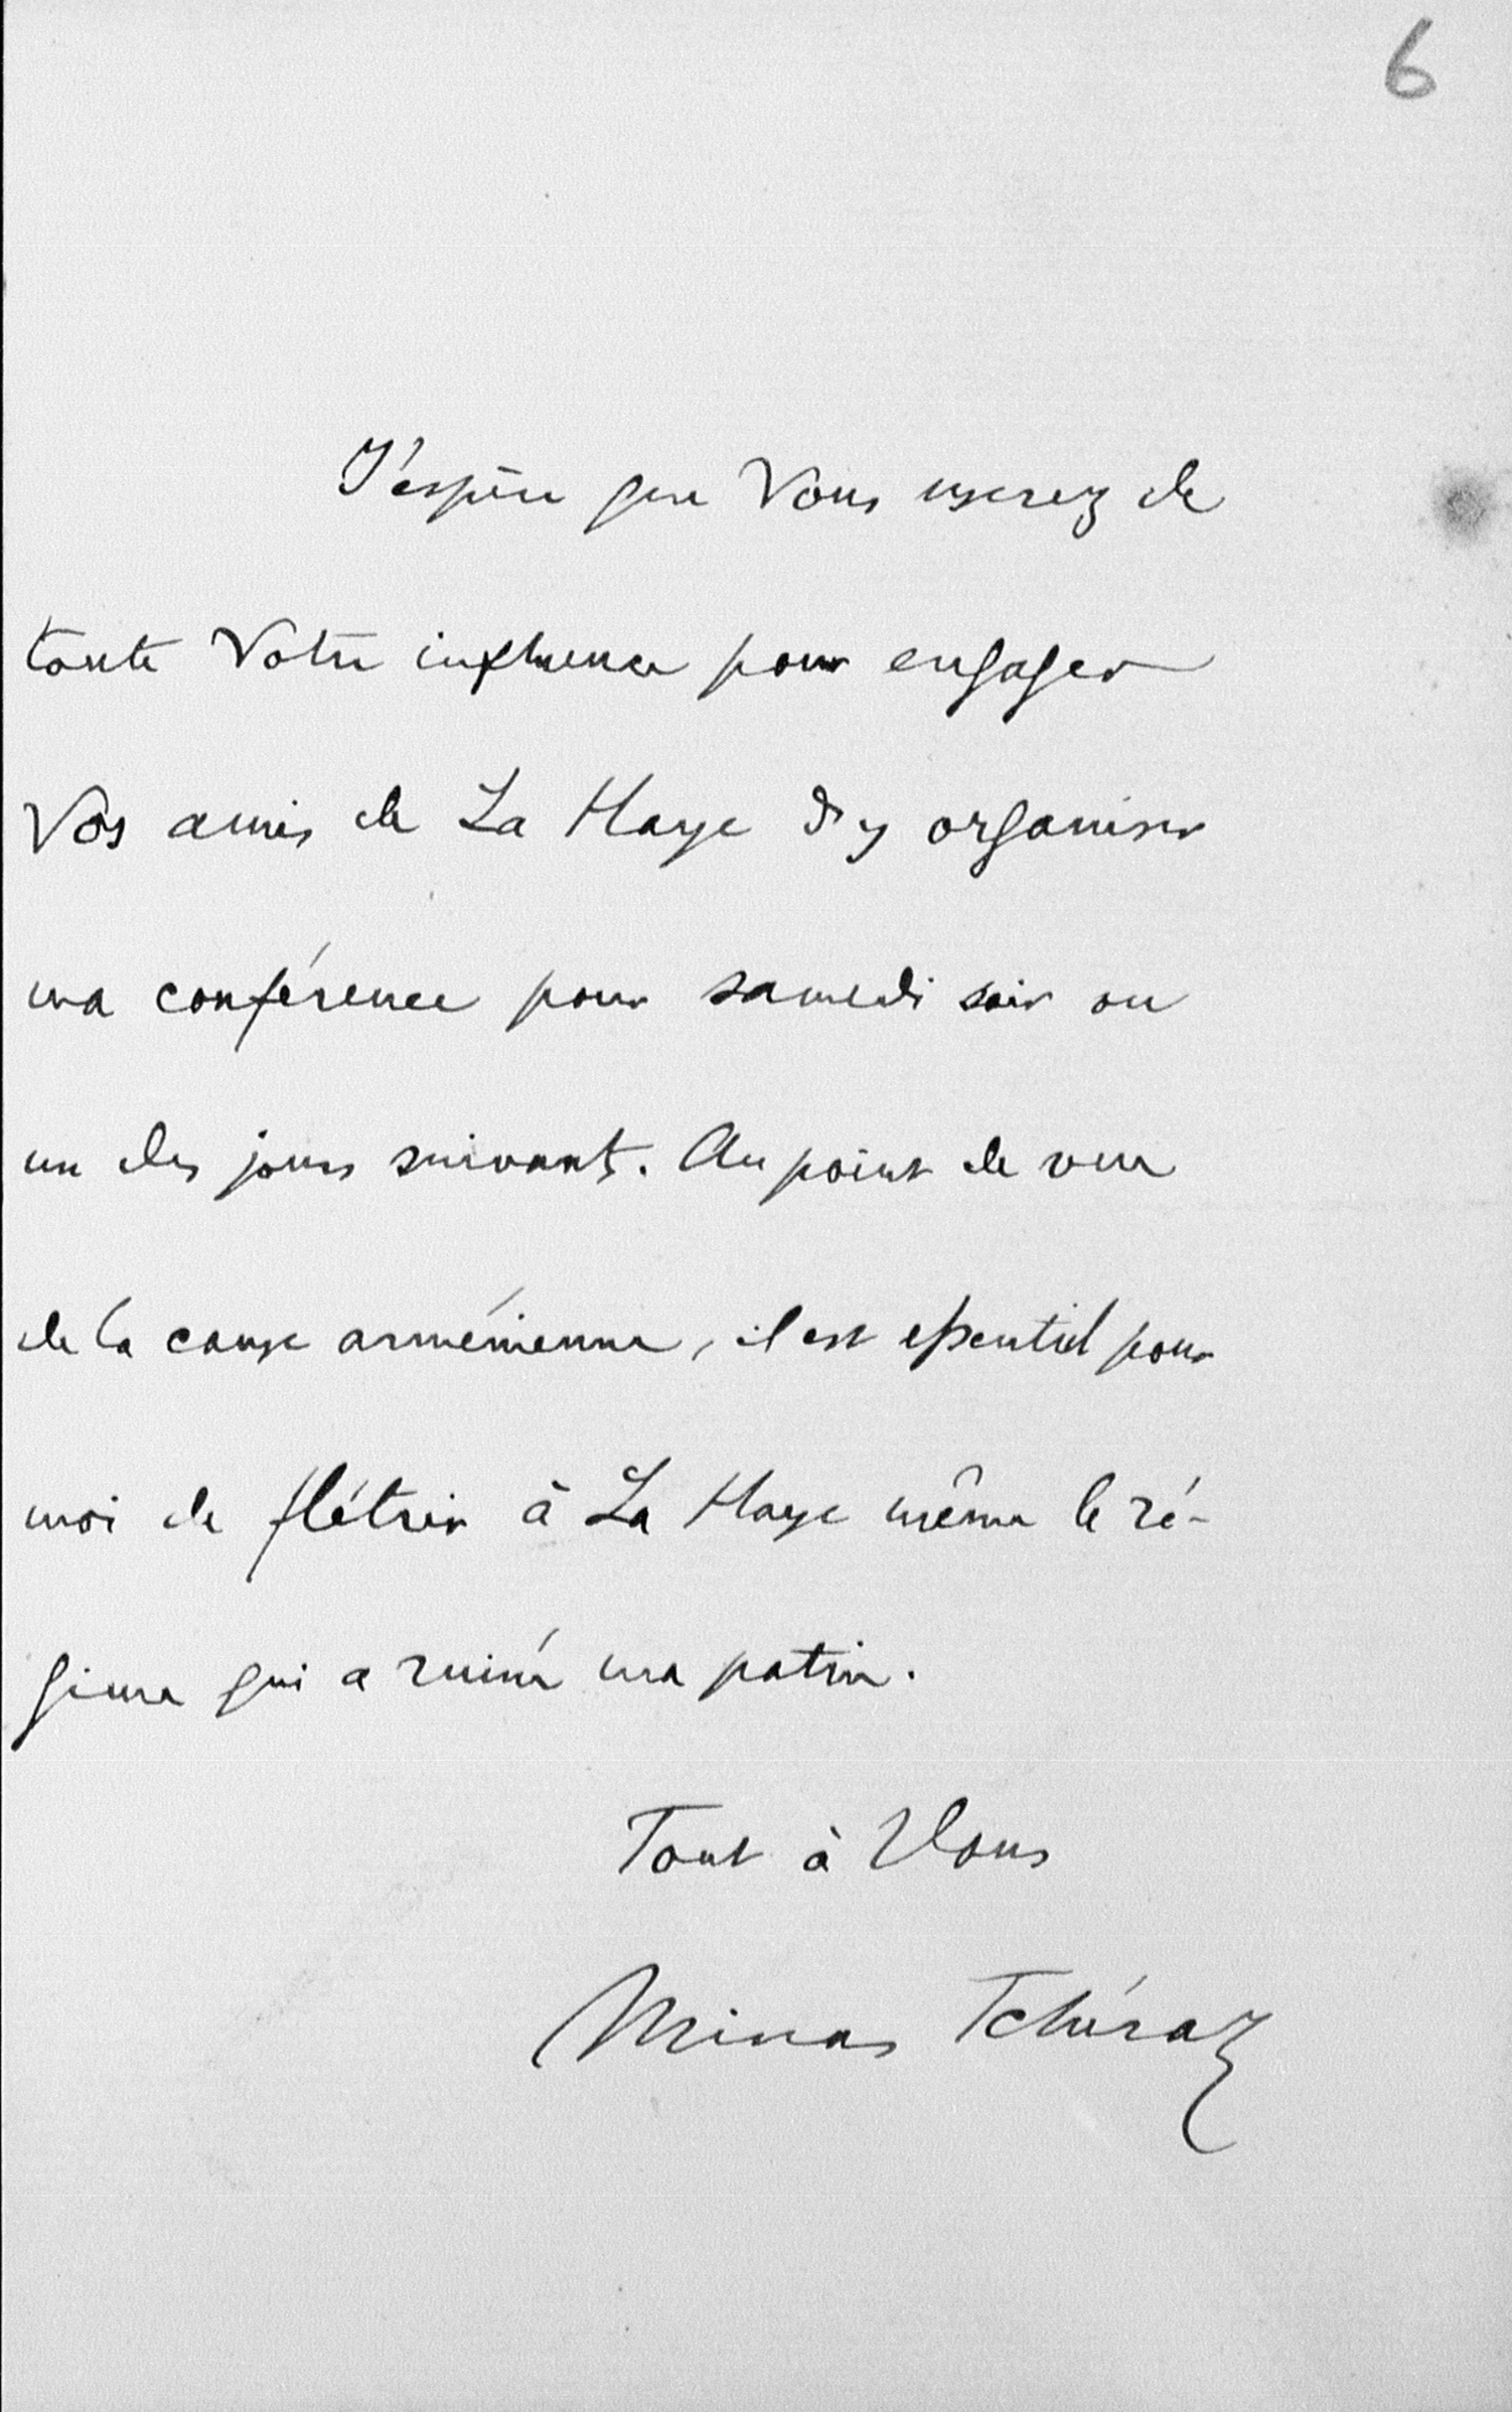 6
J'espère que Vous userez de
toute Votre influence pour engager
Vos amis de La Haye d'y organiser
ma conférence pour samedi soir ou
un des jours suivants. Au point de vue
de la cause arménienne, il est essentiel pour
moi de flétrir à La Haye même le ré-
gime qui a ruiné ma patrie.
Tout à Vous
Minas Tchéraz